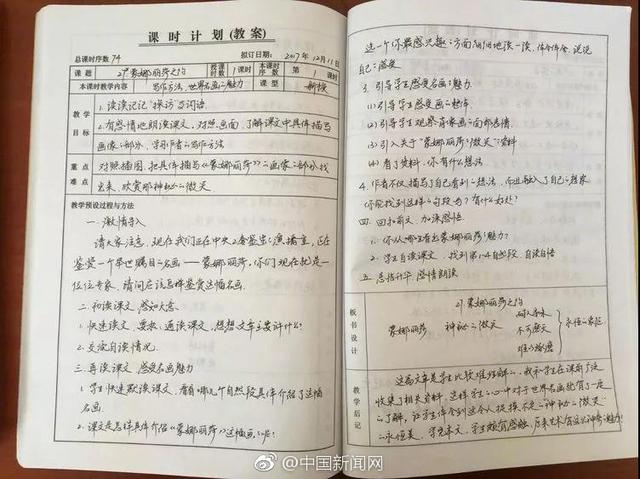 课时计划(教案)
总课时序数 74 拟订日期: 2017年12月11日
课题 21.蒙娜丽莎之约 授课时数 1课时 本课时序数 第1课时
本课时教学内容 写作方法,世界名画之魅力 课型 新授
教学目标
1.读读记记"探访"等词语。
2.有感情地朗读课文,对照画面,了解课文中具体描写
画像之部分,学习作者之写作方法
重点难点
对照插图,把具体描写《蒙娜丽莎》之画像之部分找
出来,欣赏那神秘之微笑
教学预设过程与方法
一、激情导入
请大家注意,现在我们正在中央2套鉴宝之演播室,正在
鉴赏一个举世瞩目之名画——蒙娜丽莎,你们现在就是一
位位专家,请问在该怎样鉴赏这幅名画.
二、初读课文,感知大意.
1.快速读文,要求:通读课文,想想文章主要讲什么?
2.交流自读情况.
三、再读课文,感受名画魅力
1.学生快速默读课文,看有哪几个自然段具体介绍了这幅
名画.
2.课文是怎样具体介绍《蒙娜丽莎》这幅画之呢?
选一个你最感兴趣之方面细细地读一读,体会体会,说说
自己之感受
3.引导学生感受名画之魅力.
(1)引导学生感受画之整体
(2)引导学生观察肖像画之面部表情.
(3)引入关于"蒙娜丽莎"微笑之资料
(4)看了资料,你有什么想法
4.作者不仅描写了自己看到之想法,而且融入了自己之想象
你能找到这样之句段吗?有什么好处?
四、回扣前文,加深感悟
1.你从哪里看出蒙娜丽莎之魅力?
2.学生自读课文,找到第1-4自然段,自读自悟
五、总结升华,感情朗读
板书设计
21 蒙娜丽莎之约
蒙娜丽莎 神秘之微笑
耐人寻味
难以捉摸
永恒之象征
教学后记
这篇文章是学生比较难理解之,我和学生在课前广泛
收集了相关资料,这样学生之心中对于世界名画就有了一定
之了解,让学生体会到这令人捉摸不定之神秘之微笑
之永恒美,学完本文,学生颇有感触
@中国新闻网